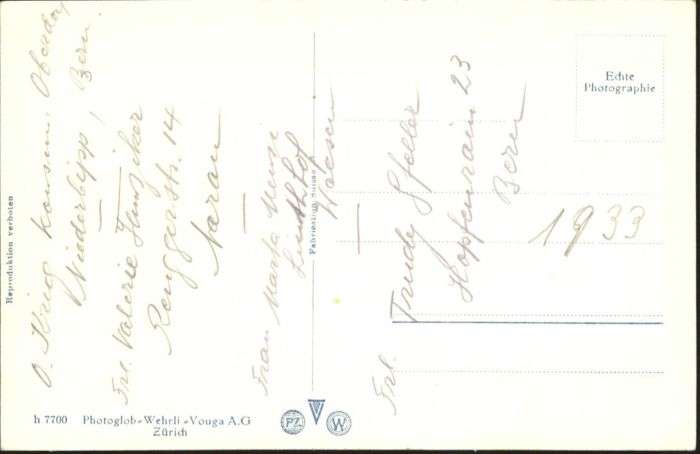 O. Krieg Konsum. Oberdorf
Niederbipp, Bern.
Frl. Valerie Hunziker
Renggerstr. 14
Aarau
Frau Marta Menze
Linthhof
Weesen
Frl. Trudy Gfeller
Hopfenrain 23
Bern
1933
Echte
Photographie
Reproduktion verboten
Fabrication Suisse
h 7700 Photoglob-Wehrli & Vouga A.G
Zürich
PZ
W